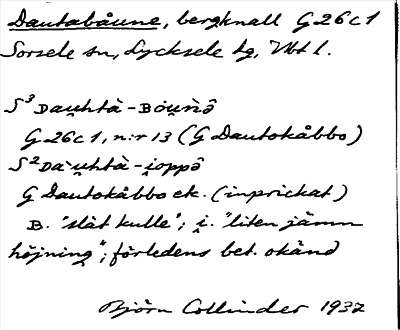 Dautabåune, bergknall G 26 c 1
Sorsele sn, Lycksele tg, Vbt l.
S³ Dau̯htà-Bou̯nə̂
G 26 c 1, n:r 13 (G Dautokåbbo)
S² Dàu̯htà-i̯oppə̂
G Dautokåbbo ek. (inprickat)
B. "slät kulle"; i̯. "liten jämn
höjning"; förledens bet. okänd
Björn Collinder 1937